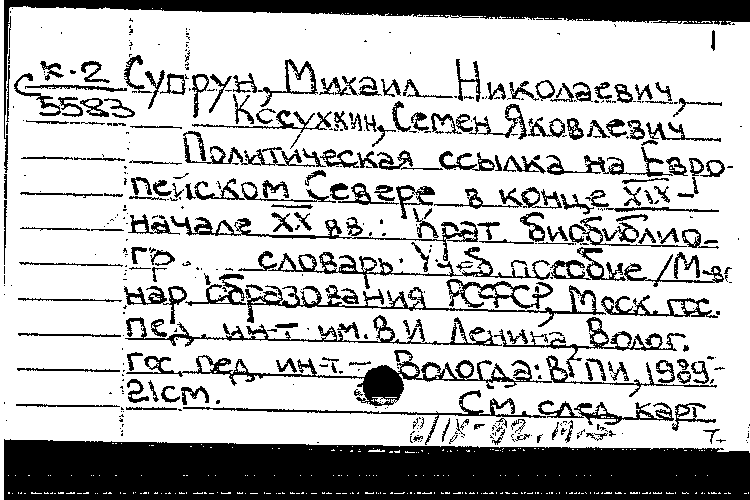 1
С к-2 Супрун, Михаил Николаевич,
5583 Косухкин, Семен Яковлевич
Политическая ссылка на Евро-
пейском Севере в конце XIX -
начале XX вв.: Крат. биобиблио-
гр. словарь: Учеб. пособие / М-во
нар. образования РСФСР, Моск. гос.
пед. ин-т им. В.И. Ленина, Волог.
гос. пед. ин-т. - Вологда: ВГПИ, 1989.-
21см.
См. след. карт